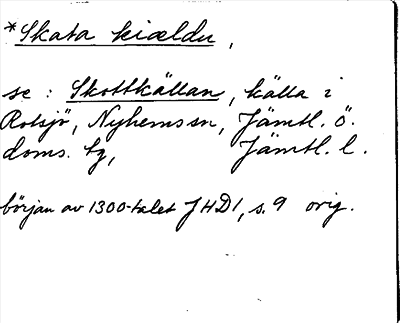 *Skata kiældu,
se: Skottkällan, källa i
Rotsjö, Nyhems sn, Jämtl. ö.
doms. tg, Jämtl. l.
början av 1300-talet JHD1, s. 9 orig.